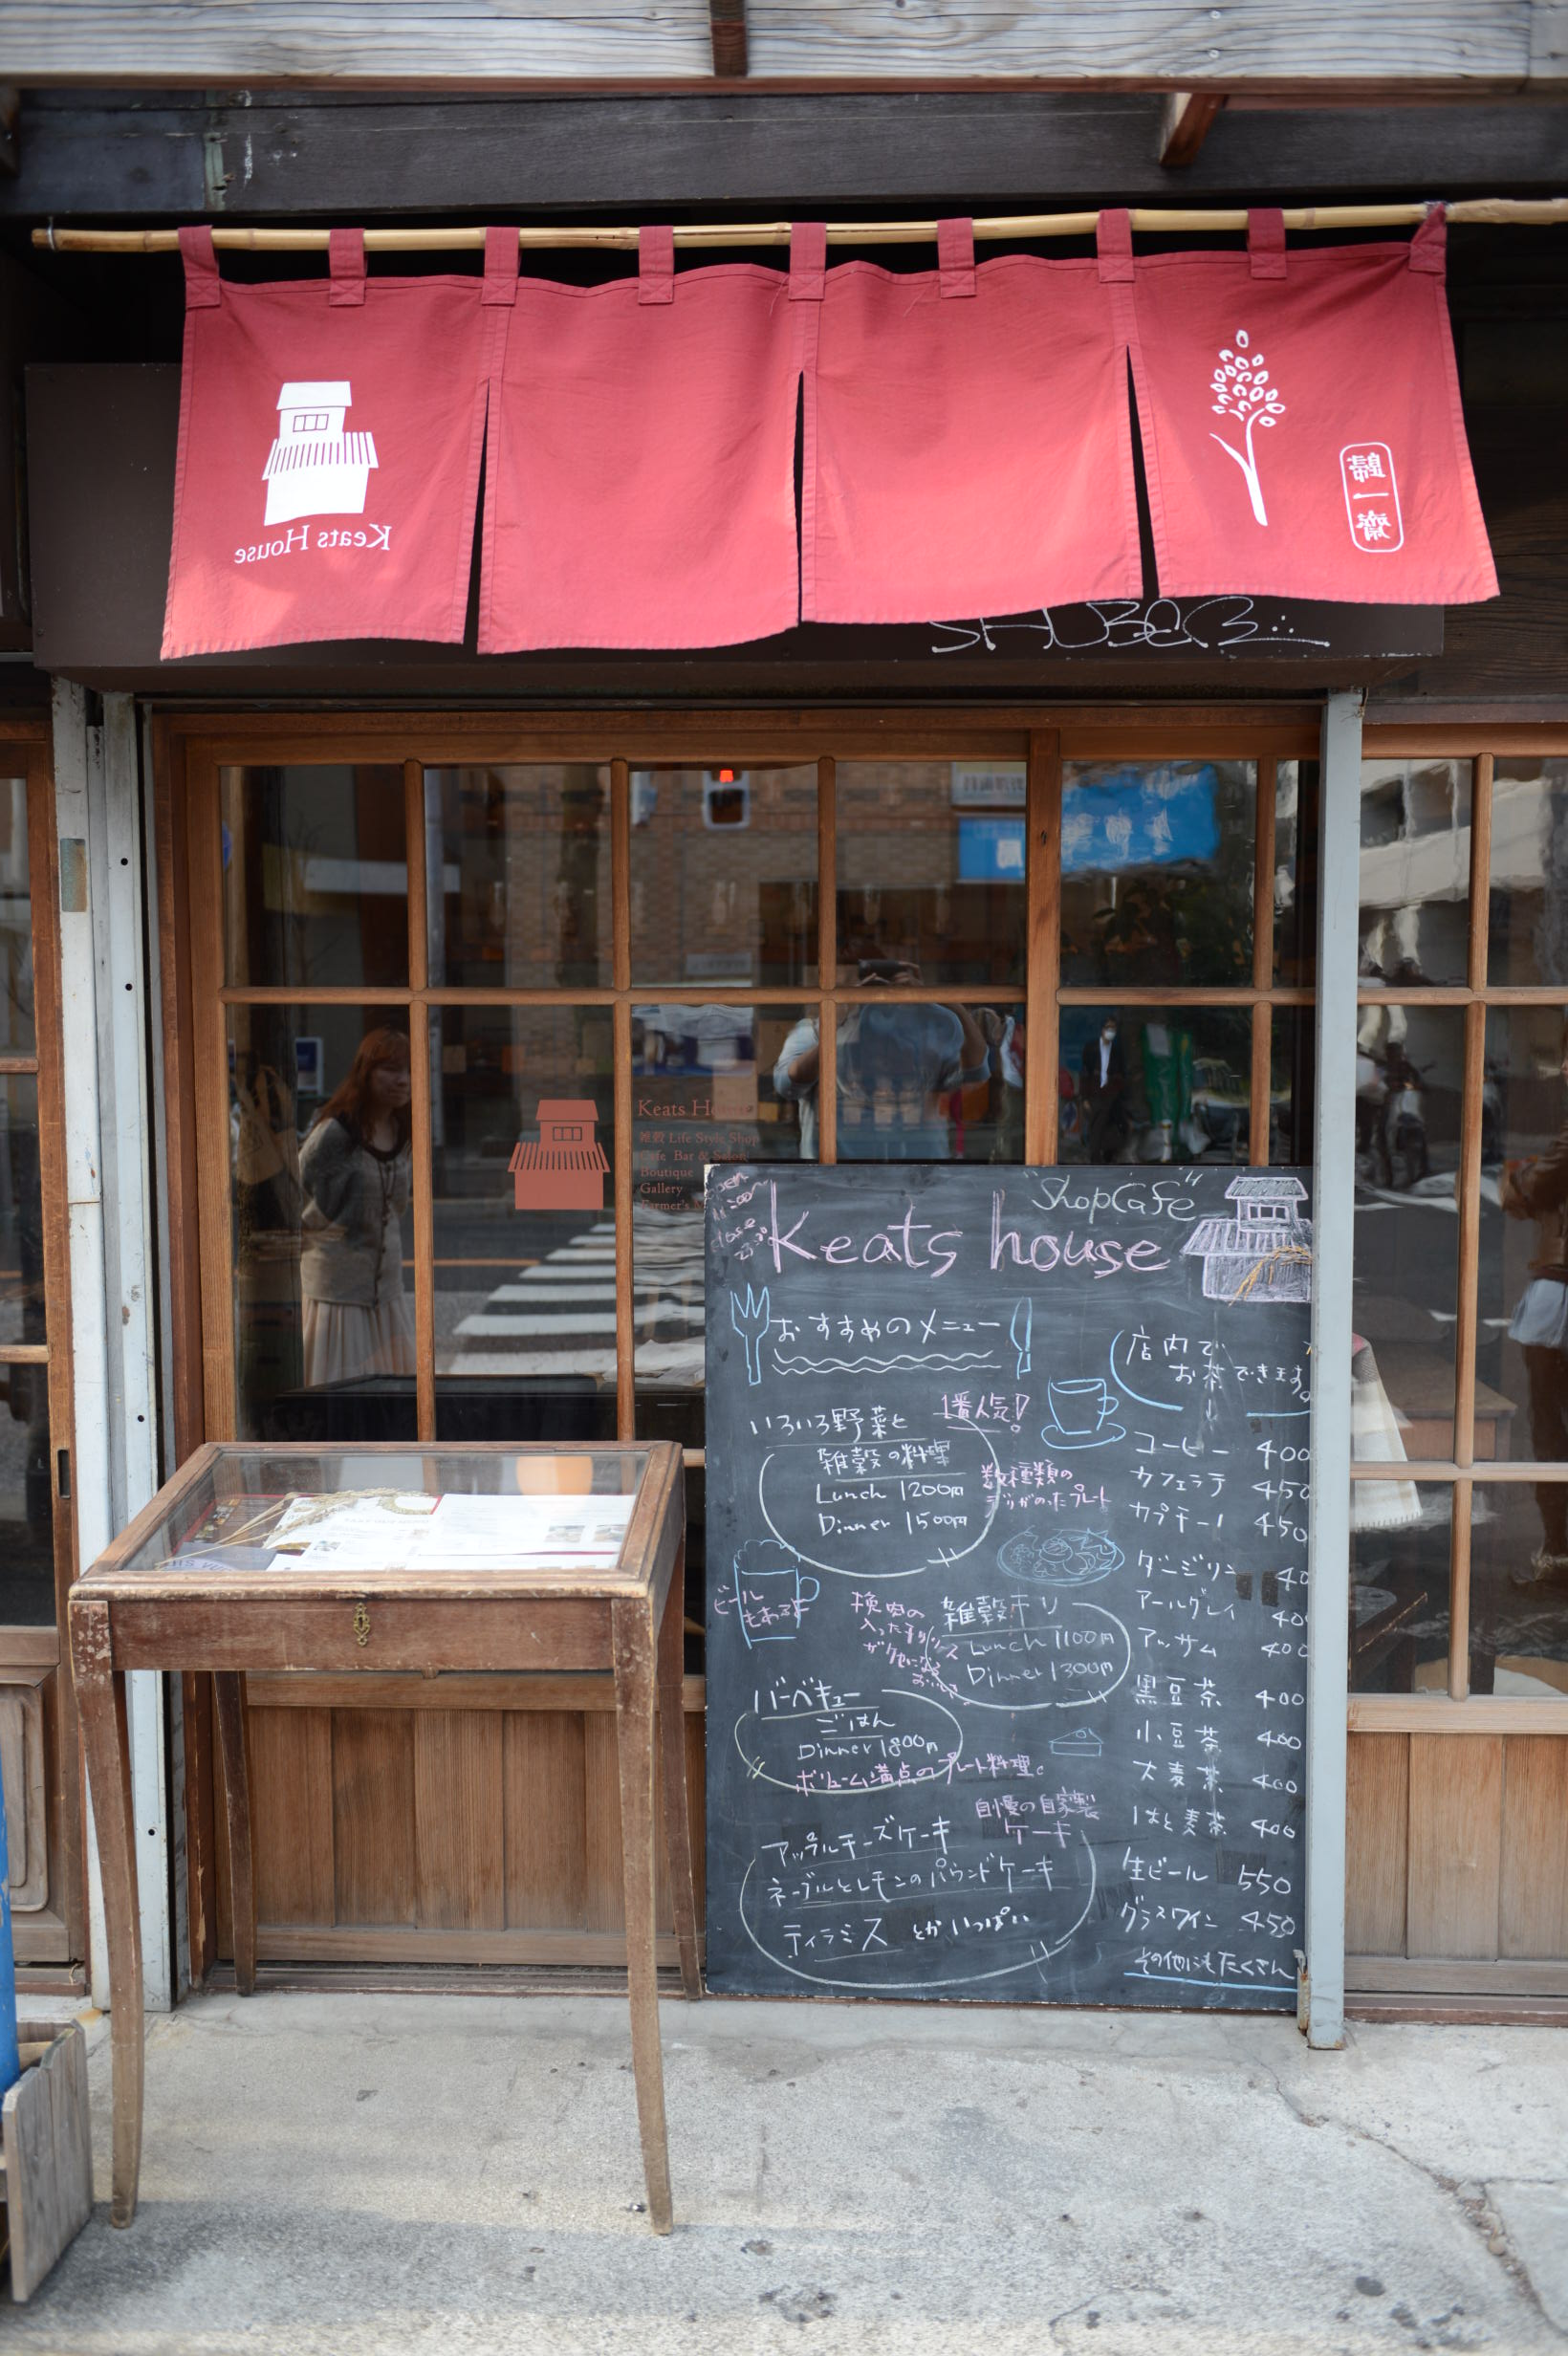 Keats House
歸一齋
SHUBEB
Keats House
雑穀 Life Style Shop
Cafe Bar & Salon
Boutique
Gallery
Farmer's
Open
Close
"Shop Cafe"
Keats house
おすすめのメニュー
いろいろ野菜と
1番人気!
雑穀の料理
Lunch 1200円
Dinner 1500円
数種類の
デリがのったプレート
ビール
もあるよ
挽肉の
入った
雑穀キリ
Lunch 1100円
Dinner 1300円
バーベキュー
ごはん
Dinner 1800円
ボリューム満点のプレート料理。
自慢の自家製
ケーキ
アップルチーズケーキ
ネーブルとレモンのパウンドケーキ
ティラミス とかいっぱい
店内で
お茶できます。
コーヒー 400
カフェラテ 450
カプチーノ 450
ダージリン 40
アールグレイ 40
アッサム 400
黒豆茶 400
小豆茶 400
大麦茶 400
はと麦茶 400
生ビール 550
グラスワイン 450
その他にもたくさん